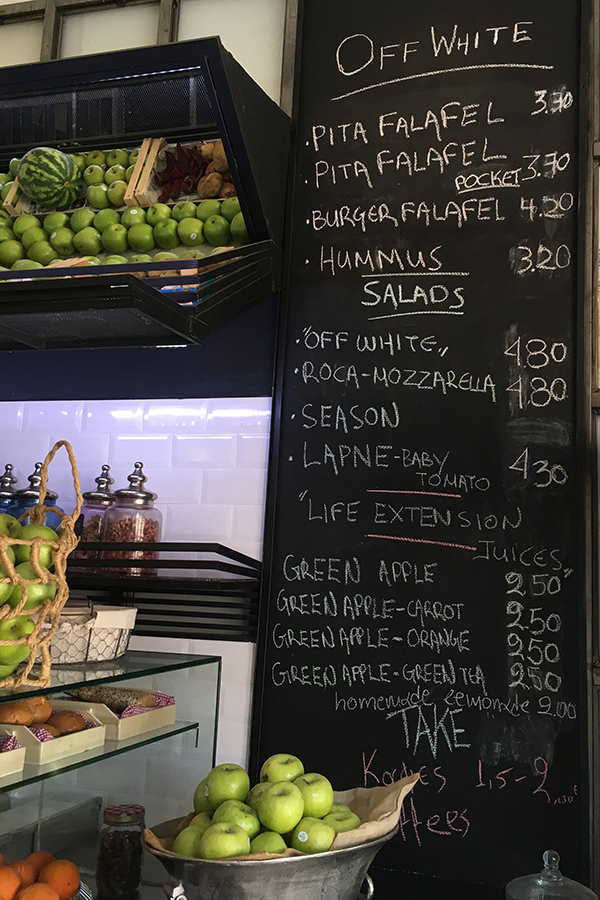 OFF WHITE
·PITA FALAFEL 3.70
·PITA FALAFEL POCKET 3.70
·BURGER FALAFEL 4.20
·HUMMUS 3.20
SALADS
"OFF WHITE„ 4.80
·ROCA-MOZZARELLA 4.80
·SEASON
·LAPNE-BABY TOMATO 4.30
"LIFE EXTENSION
JUICES"
GREEN APPLE 2.50
GREEN APPLE-CARROT 2.50
GREEN APPLE-ORANGE 2.50
GREEN APPLE-GREEN TEA 2.50
homemade lemonade 2.00
TAKE
1,5-2